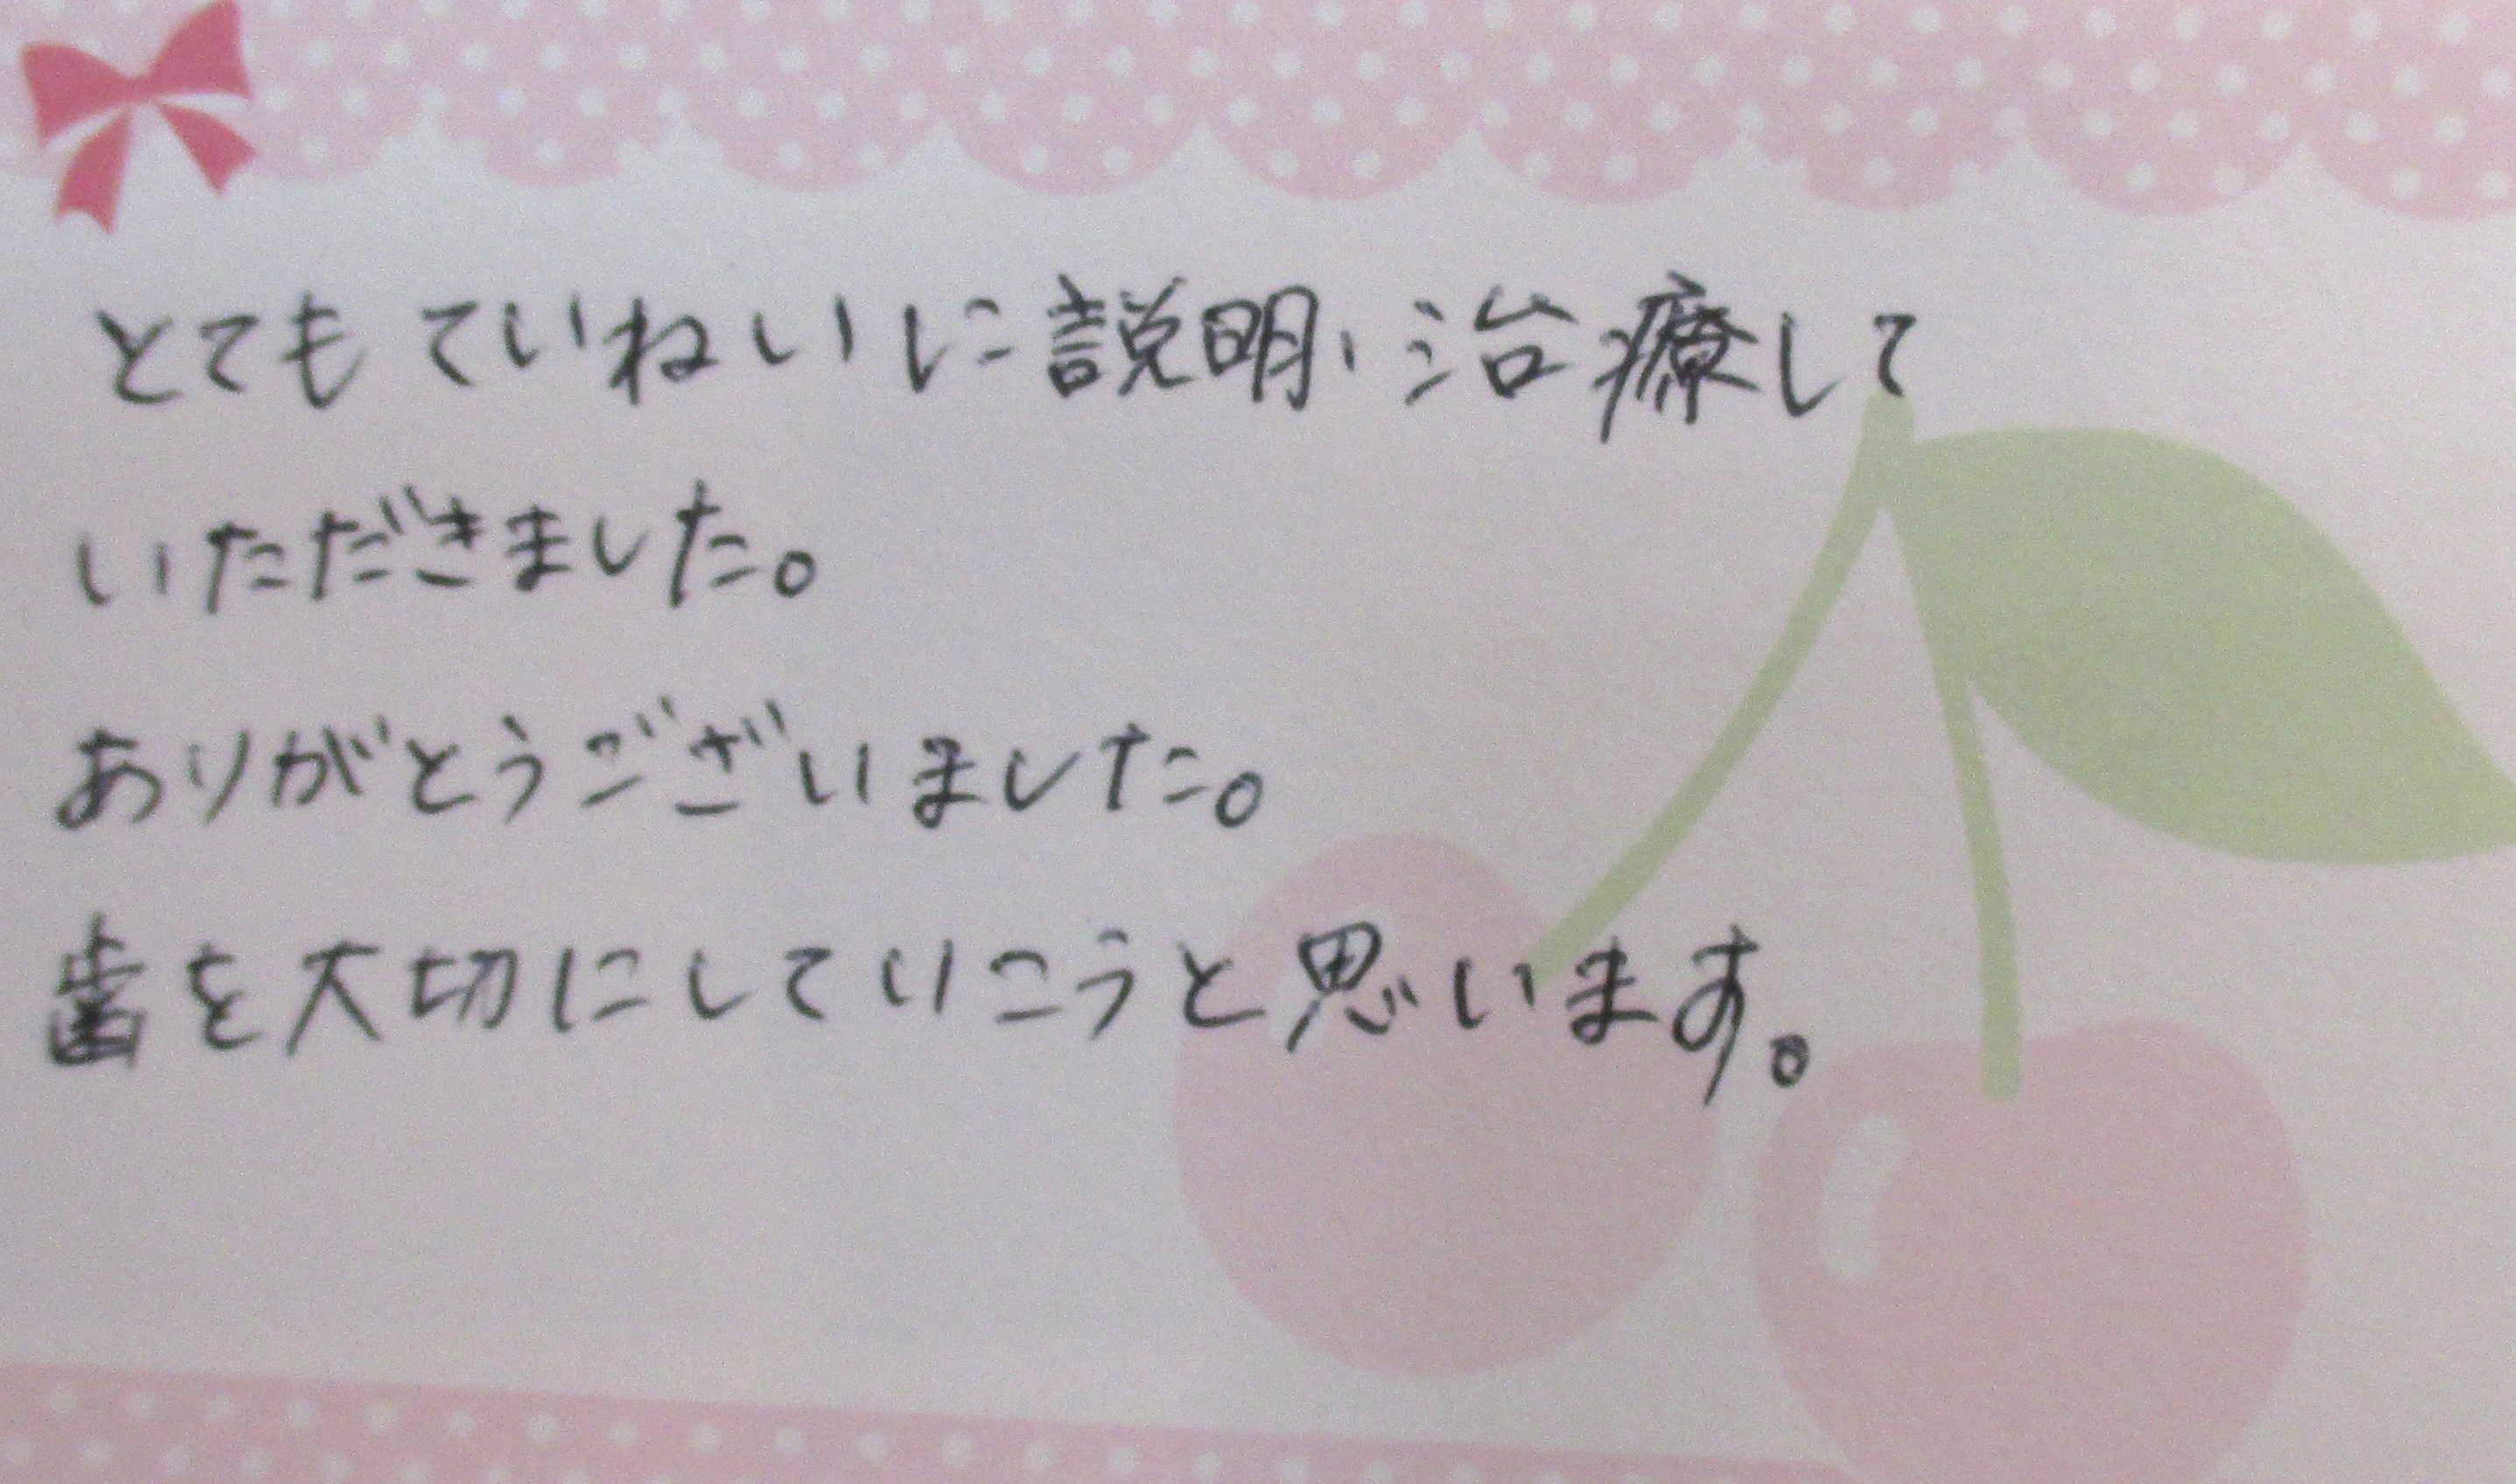 とてもていねいに説明、治療して
いただきました。
ありがとうございました。
歯を大切にしていこうと思います。